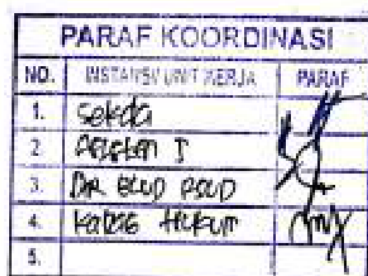 PARAF KOORDINASI
NO. INSTANSI/UNIT KERJA PARAF
1. Sekda
2. Asisten I
3. DR. BLUD RSUD
4. Kabag Hukum
5.